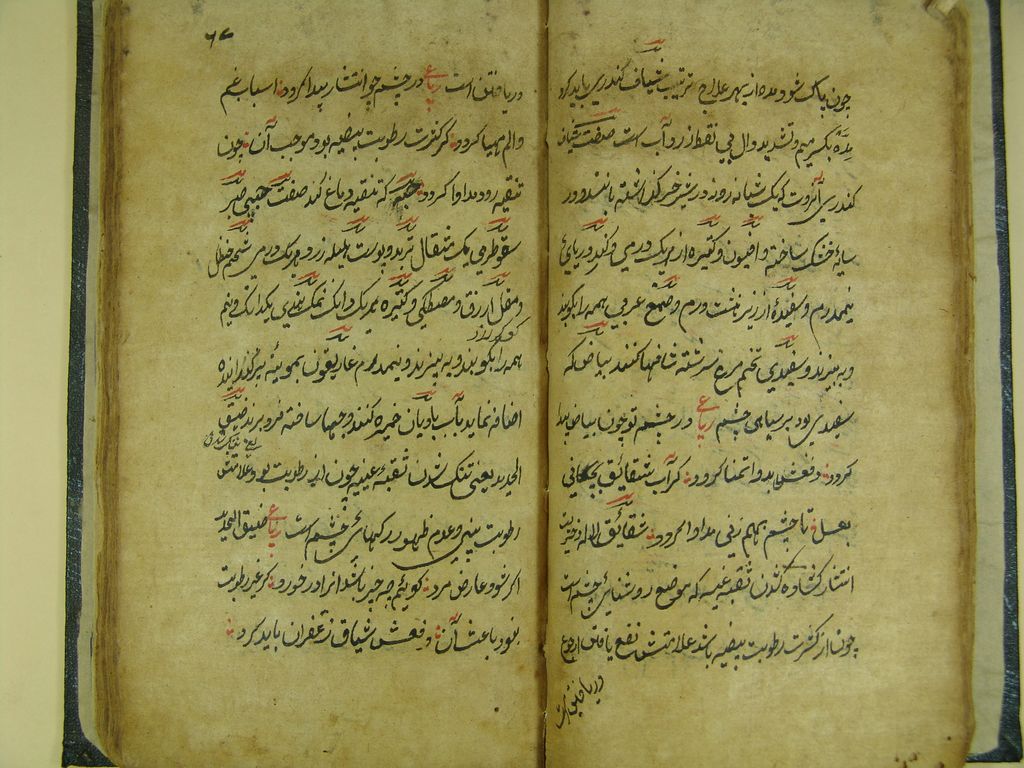 چون پاک شود مده از بهر علاج ترتیب شیاف کندری باید کرد
مده بکسر میم و تشدید دال بی نقطه زرد آب است صفت شیاف
کندری انزروت که یک شبانه روز در شیر خر کذاشته باشند و در
سایه خشک ساخته و افیون و کتیره از هر یک درمی و کندر دریای
نیمدرم و سفیده ارزیز هشت درم و صمغ عربی همه را بکوبند
و به بیزند و سفیدی تخم مرغ سرشته شافها کنند بیاض که
سفیدی بود بر سیاهی چشم رباعی در چشم تو چون بیاض پیدا
کردد دفعش بدو اتمنا کردد کر آب شقائق بچکانی
بعسل تا چشم بهم زنی مداوا کردد شقائق لاله دختریت
انتشار کشاده شدن ثقبه عنبیه که موضع روشنائی چشم است
چون از کثرت رطوبت بیضیه باشد علامتش نفع یافتن از جوع
و ریاضت است
۶۷
و ریاضت است رباعی در چشم چو انتشار پیدا کردد اسباب غم
و الم مهیا کردد کر کثرت رطوبت بیضیه بود موجب آن چون
تنقیه رود مداوا کردد حبی که تنقیه دماغ کند صفت حبی صبر
سقوطری یک مثقال تربد و پوست هلیله زرد هر یک درمی شحم حنظل
و مقل ازرق و مصطکی و کتیره هر یک دانک نمک هندی یکدانک و نیم
همه را بکوبند و به بیزند و نیمدرم غاریقون بموئینه بیز کذرانیده
اضافه نماید بآب بادیان خمیر کنند و حبها ساخته فرو برند ضیق
الحدید یعنی تنک شدن ثقبه عنبیه چون از رطوبت بود علامتش
رطوبت بینی و عدم ظهور رکهای چشم است رباعی ضیق الحدید
اکر شود عارض مرد کویم چه چیز باشد آنرا در خورد کر غیر رطوبت
نبود باعث آن دفعش بشیاف زعفران باید کرد